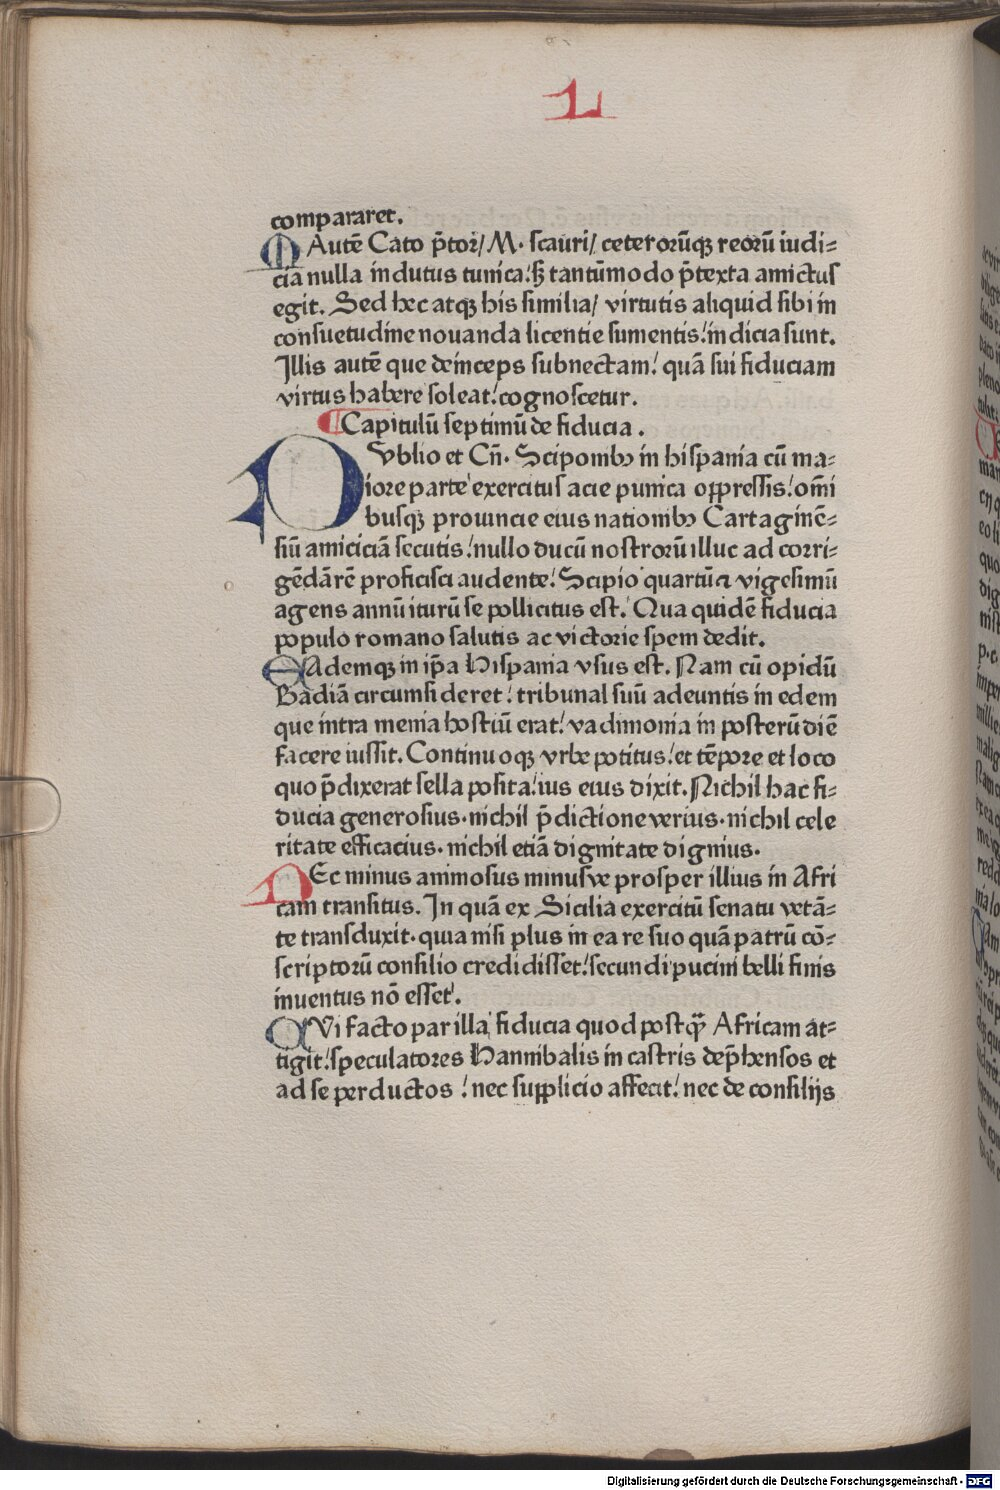 L
compararet.
M Autē Cato p̄tor/ M. scauri/ ceterorūqȝ reorū iudi⸗
cia nulla indutus tunica: sȝ tantūmodo p̄texta amictus
egit. Sed hec atqȝ his similia/ virtutis aliquid sibi in
consuetudine nouanda licentie sumentis: indicia sunt.
Illis autē que deinceps subnectam: quā sui fiduciam
virtus habere soleat: cognoscetur.
¶ Capitulū septimū de fiducia.
P Vblio et Cn̄. Scipionibꝰ in hispania cū ma⸗
iore parte exercitus acie punica oppressis: om̄i
busqȝ prouincie eius nationibꝰ Cartaginē⸗
siū amiciciā secutis: nullo ducū nostrorū illuc ad corri⸗
gēdā rē proficisci audente: Scipio quartū ⁊ vigesimū
agens annū iturū se pollicitus est: Qua quidē fiducia
populo romano salutis ac victorie spem dedit.
E Ademqȝ in ip̄a Hispania vsus est. Nam cū opidū
Badiā circumsideret: tribunal suū adeuntis in edem
que intra menia hostiū erat: vadimonia in posterū diē
facere iussit. Continuoqȝ vrbe potitus: et tēpore et loco
quo p̄dixerat sella posita: ius eius dixit. Nichil hac fi⸗
ducia generosius. nichil p̄dictione verius. nichil cele
ritate efficacius. nichil etiā dignitate dignius.
N Ec minus animosus minusve prosper illius in Afri
cam transitus. In quā ex Sicilia exercitū senatu vetā⸗
te transduxit. quia nisi plus in ea re suo quā patrū cō⸗
scriptorū consilio credidisset: secundi pucini belli finis
inuentus nō esset.
Q Vi facto par illa fiducia quod postqȝ̄ Africam at⸗
tigit: speculatores Hannibalis in castris dep̄hensos et
ad se perductos: nec supplicio affecit: nec de consilijs
Digitalisierung gefördert durch die Deutsche Forschungsgemeinschaft - DFG